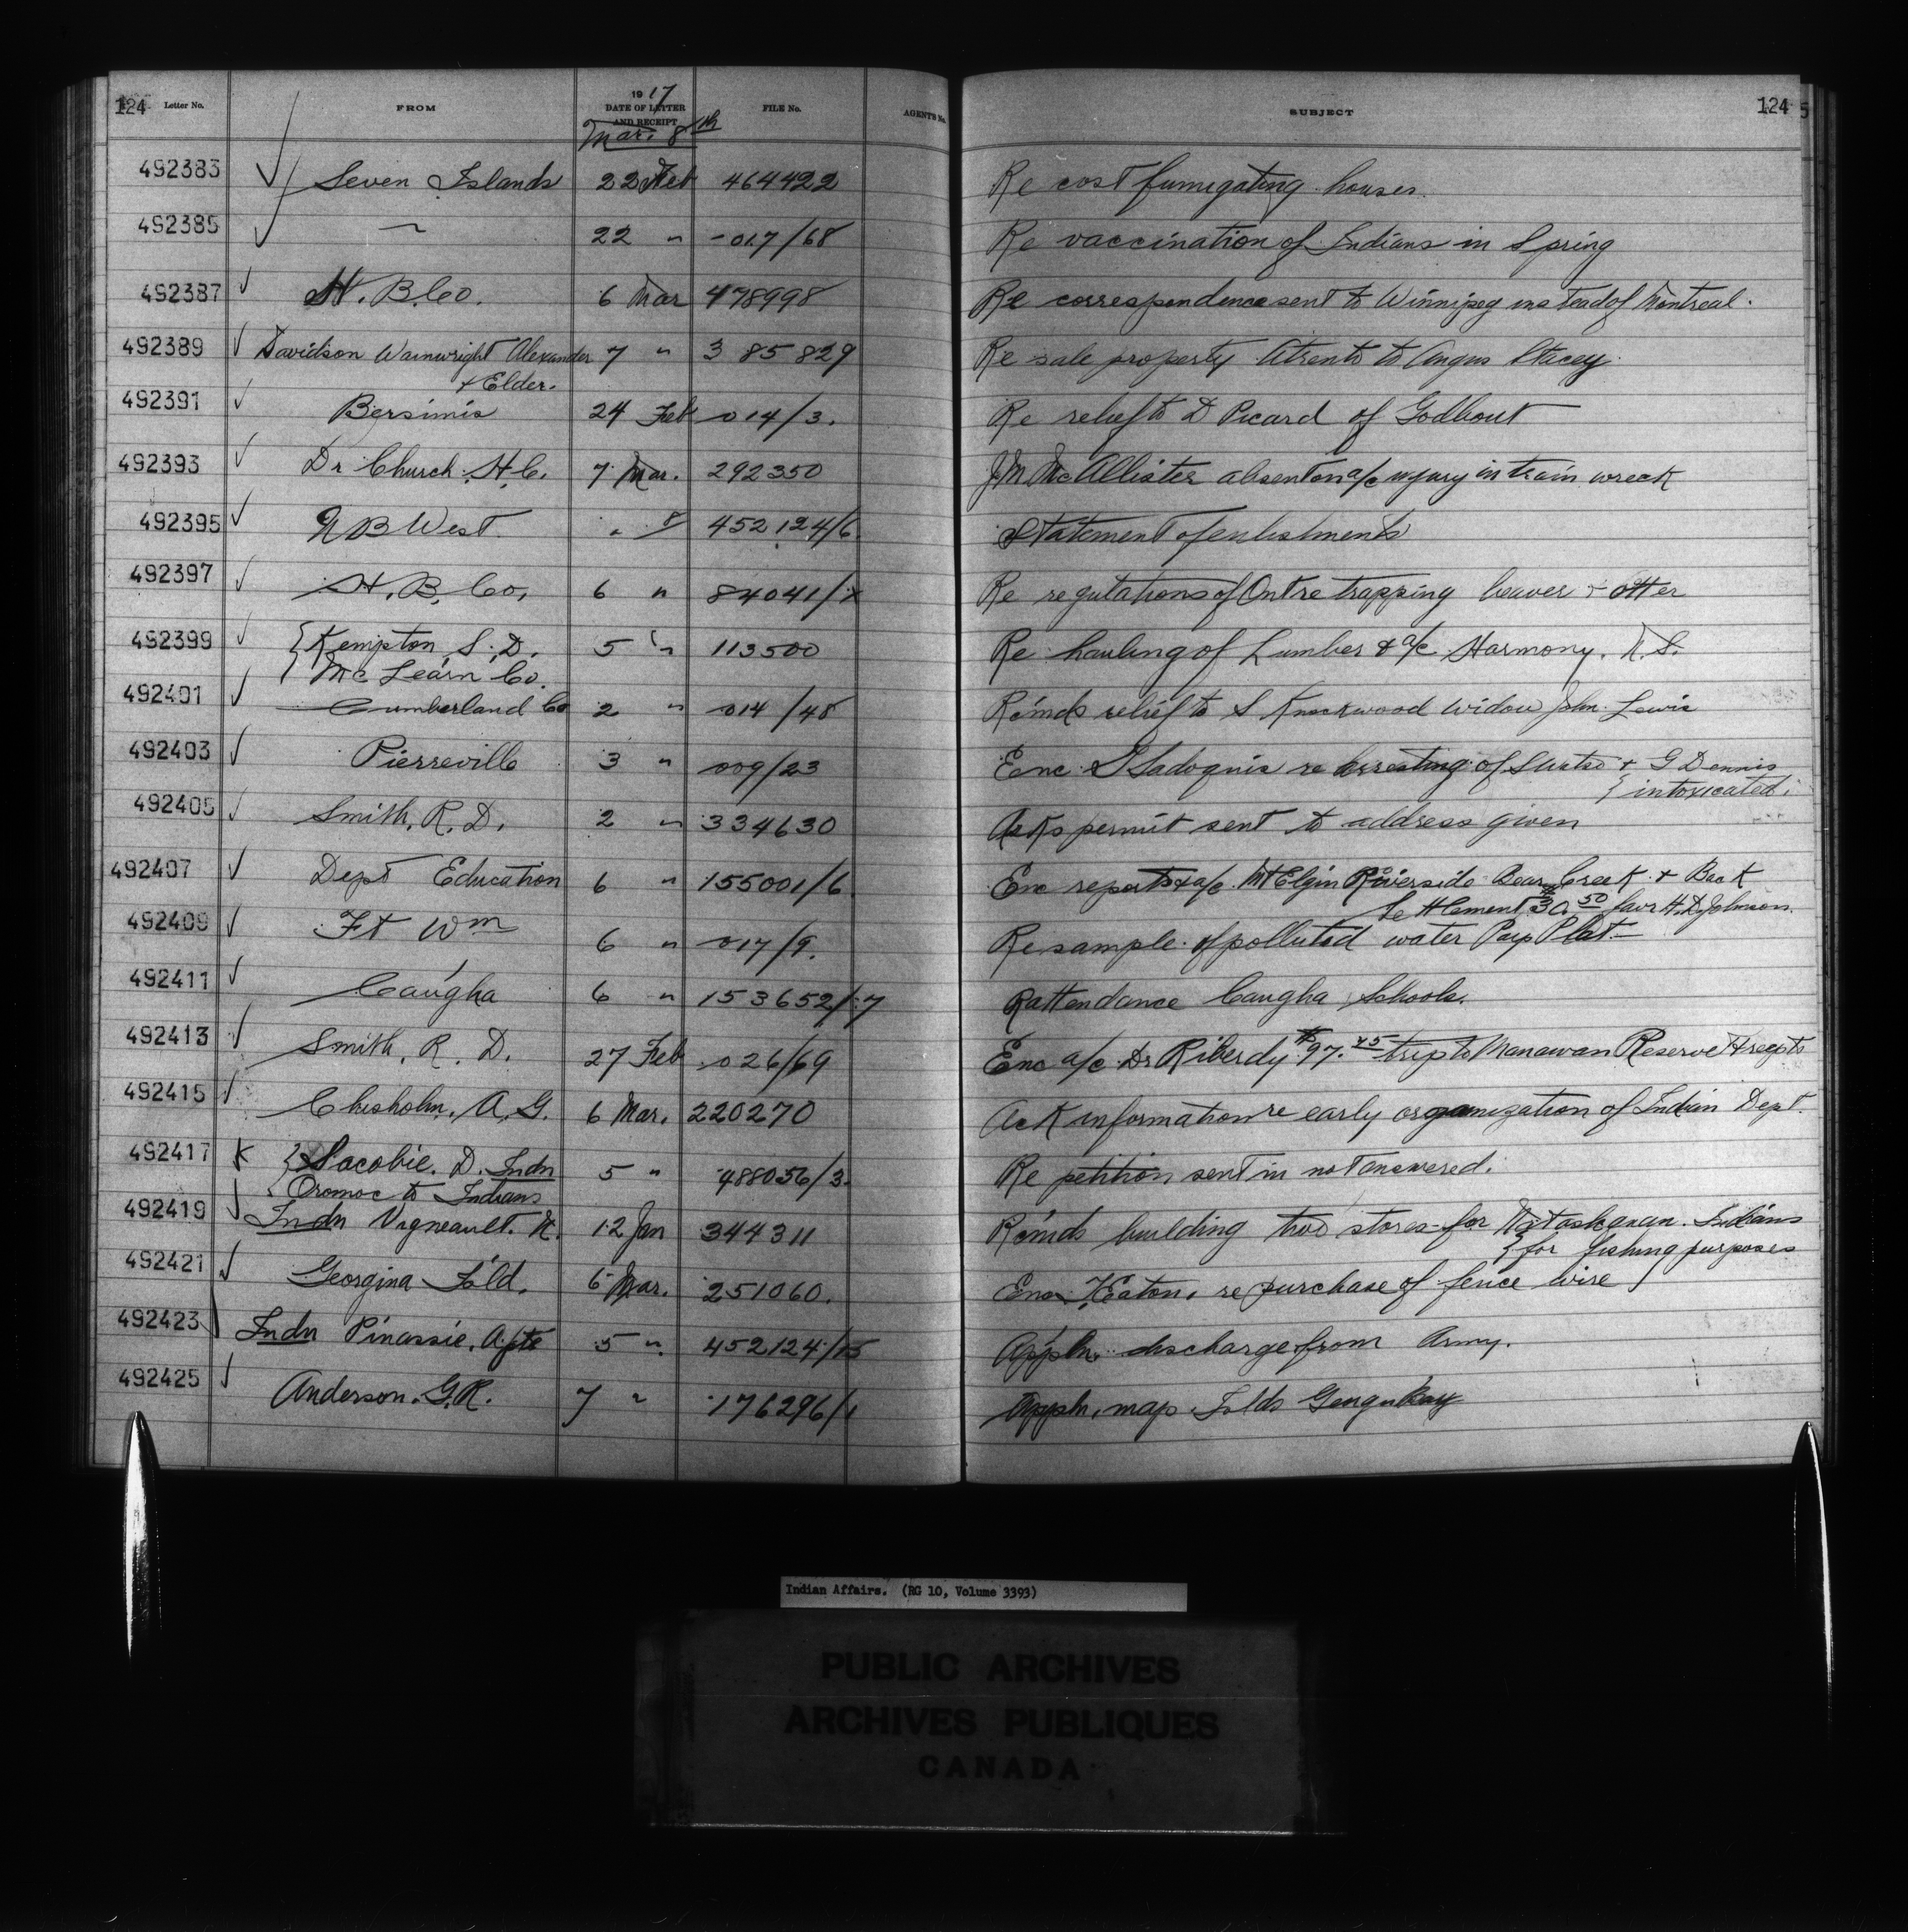 124 Letter No. FROM 1917 DATE OF LETTER AND RECEIPT FILE No. AGENT'S No. SUBJECT 124
Mar. 8th
492383 Seven Islands 22 Feb 464422 Re cost fumigating houses.
492385 " 22 " 017/68 Re vaccination of Indians in Spring
492387 H. B. Co. 6 Mar 478998 Re correspondence sent to Winnipeg instead of Montreal.
492389 Davidson Wainwright Alexander 7 " 385829 Re sale property to Angus Stacey
+ Elder.
492391 Bersimis 24 Feb 014/3. Re relief to D Picard of Godbout
492393 Dr Church. H. C. 7 Mar. 292350 J M McAllister absent on a/c injury in train wreck
492395 N B West. " 8 452124/6 Statement of enlistments
492397 H. B. Co. 6 " 84041/ Re regulations of Ont re trapping beaver + otter
492399 Kempton S. D. 5 " 113500 Re hauling of Lumber & a/c Harmony. N. S.
McLearn Co.
492401 Cumberland Co 2 " 014/48 Recmds relief to S Knockwood widow John Lewis
492403 Pierreville 3 " 009/23 Enc. re arresting of + G Dennis
intoxicated.
492405 Smith, R. D. 2 " 334630 Asks permit sent to address given
492407 Dept Education 6 " 155001/6 Enc reports & a/c Mt Elgin Riverside Bear Creek + Back
Settlement $30.50 favr H. D. Johnson.
492409 Ft Wm 6 " 017/9. Re sample of polluted water Pays Plat
492411 Caugha 6 " 153652/7 R attendance Caugha Schools.
492413 Smith, R. D. 27 Feb 026/69 Enc a/c Dr Riberdy $97.45 trip to Manawan Reserve & recpts
492415 Chisholm, A. G. 6 Mar. 220270 Ack information re early organization of Indian Dept.
492417 Sacobie. D. Indn 5 " 488056/3. Re petition sent in not answered.
Oromocto Indians
492419 Indn Vigneault. N. 12 Jan 344311 Recmds building two stores for Natashquan Indians
for fishing purposes
492421 Georgina Isld. 6 Mar. 251060. Enc T Eaton. re purchase of fence wire
492423 Indn Pinassie. A. pte 5 " 452124/15 Appln. discharge from Army.
492425 Anderson. G. R. 7 " 176296/1 Appln. map Islds Georgn Bay
Indian Affairs. (RG 10, Volume 3393)
PUBLIC ARCHIVES
ARCHIVES PUBLIQUES
CANADA